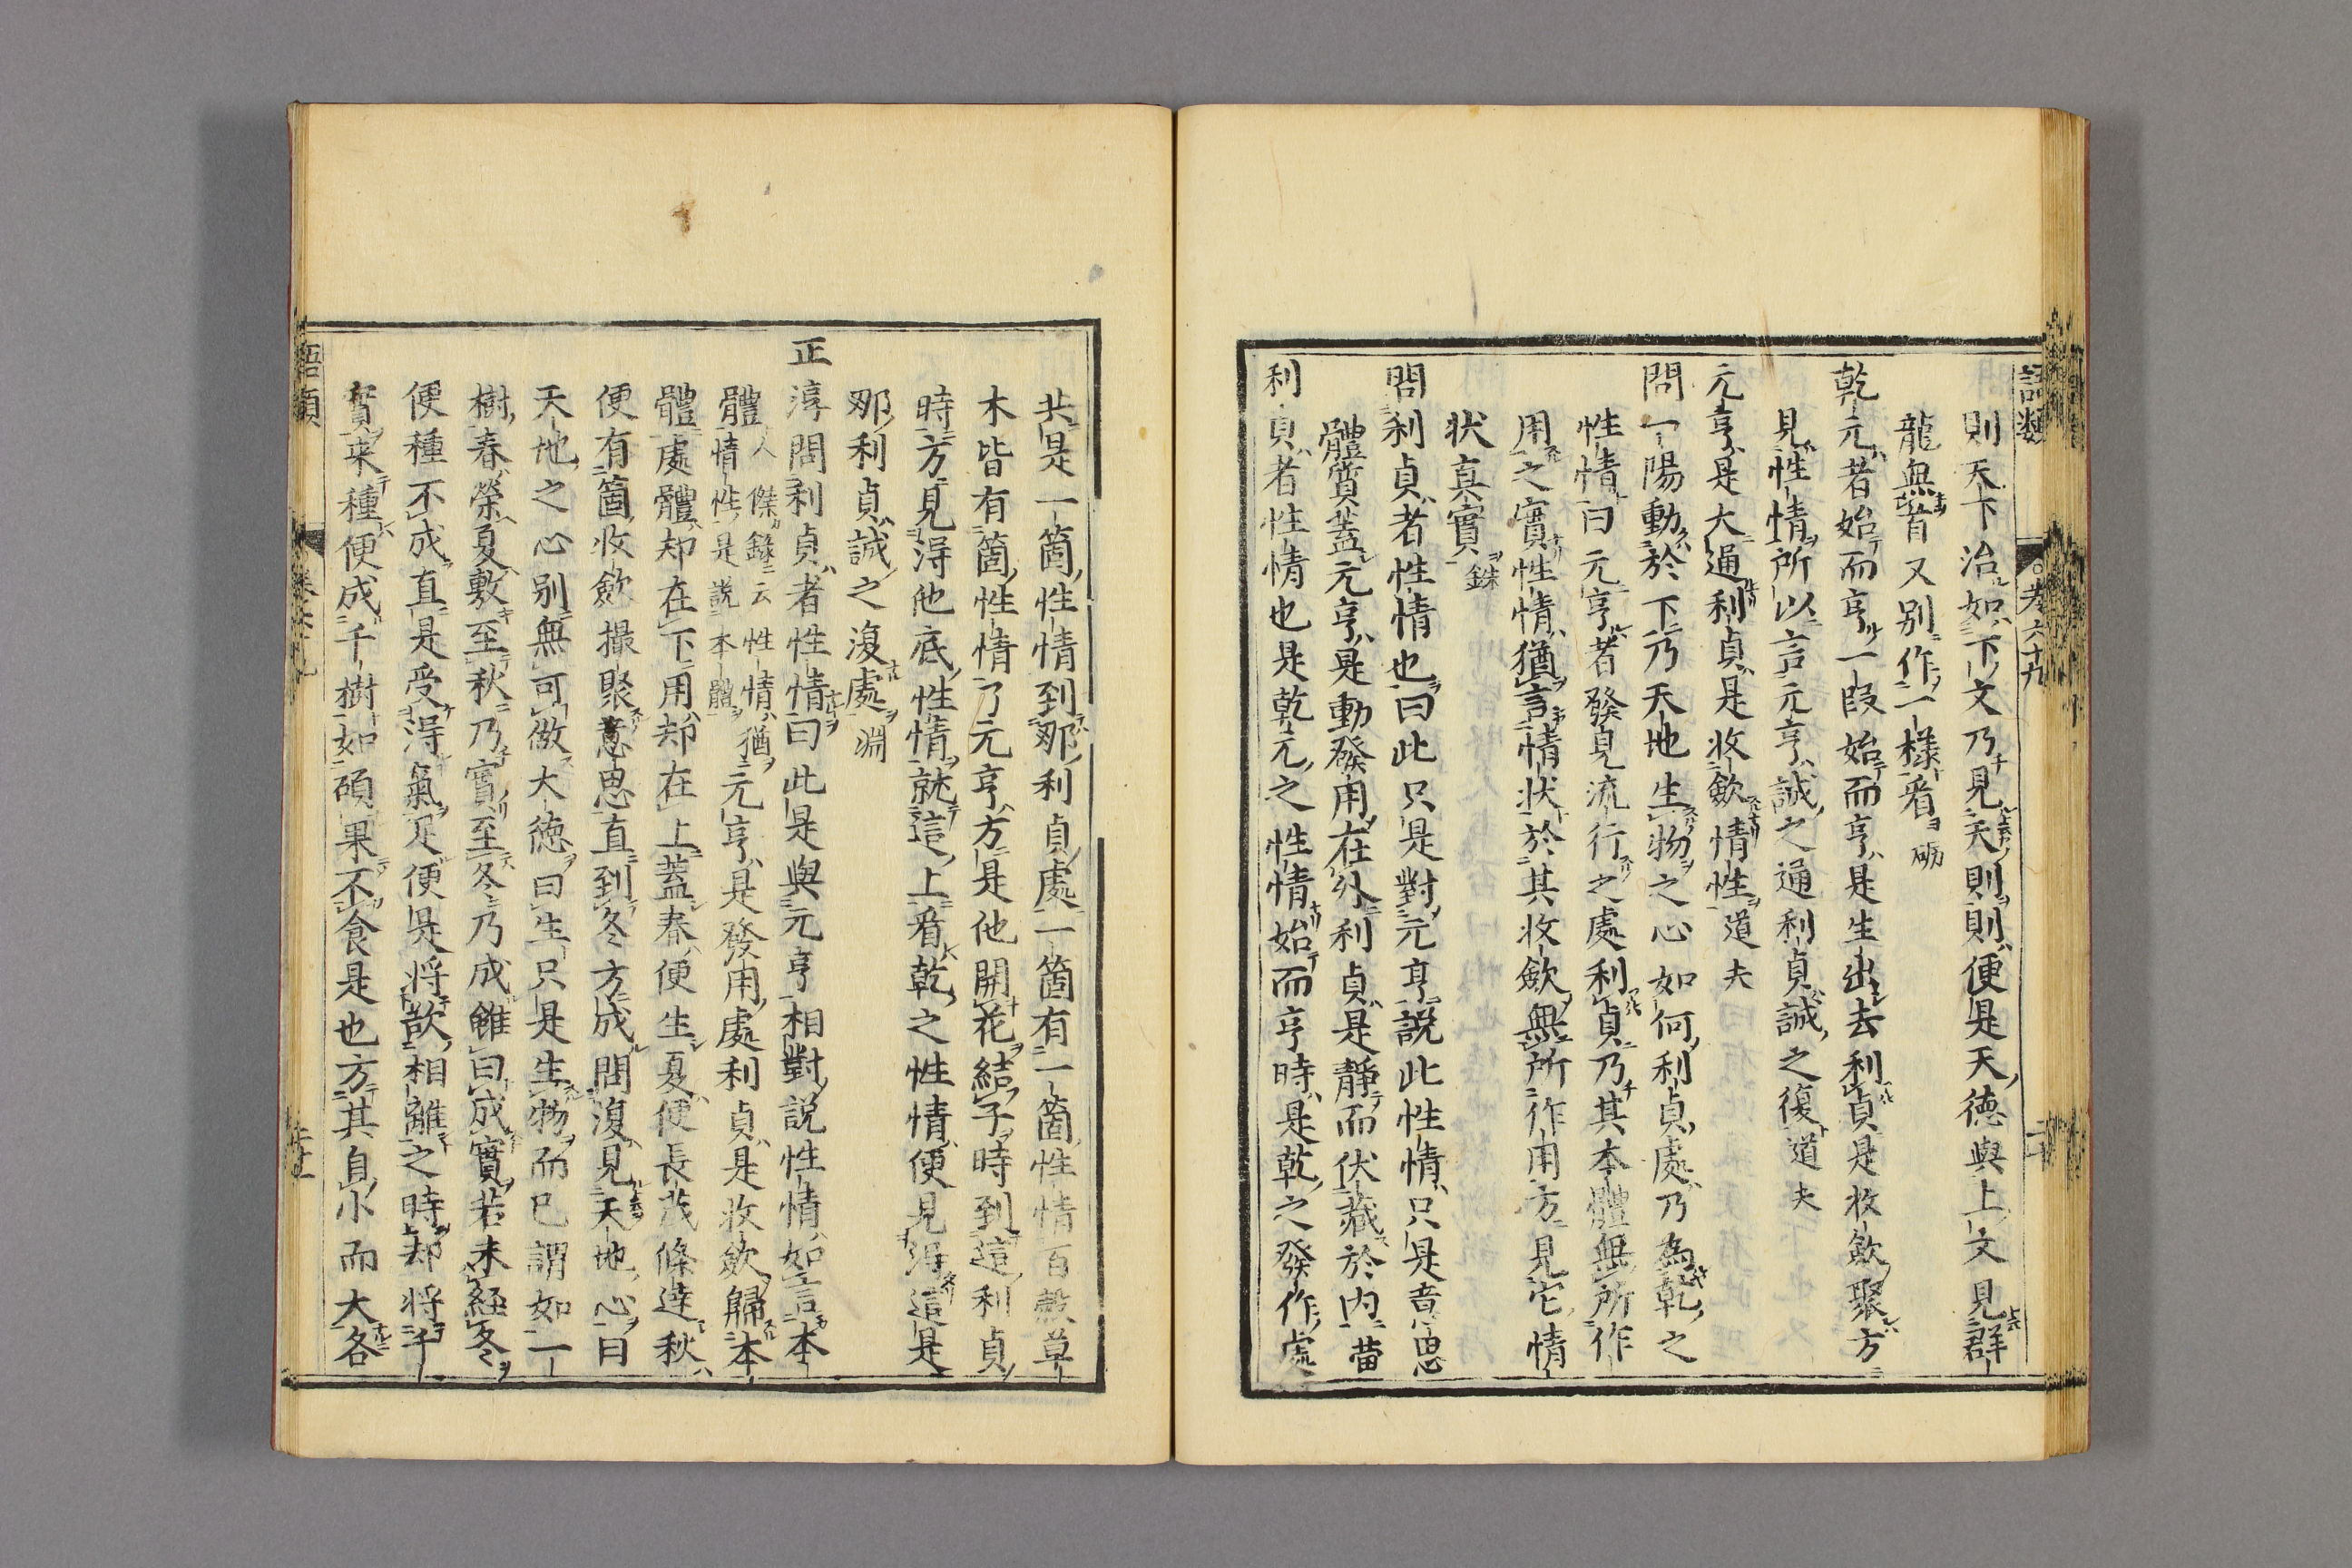 語類 卷六十九 二十
則天下治如下文乃見天則則便是天德與上文見群
龍無首又別作一樣看 礪
乾元者始而亨一段始而亨是生出去利貞是收斂聚方
見性情所以言元亨誠之通利貞誠之復 道夫
元亨是大通利貞是收斂情性 道夫
問一陽動於下乃天地生物之心如何利貞處乃為乾之
性情曰元亨者發見流行之處利貞乃其本體無所作
用之實性情猶言情状於其收斂無所作用方見它情
状真實 銖
問利貞者性情也曰此只是對元亨說此性情只是意思
體質蓋元亨是動發用在外利貞是靜而伏藏於内 㽥
利貞者性情也是乾元之性情始而亨時是乾之發作處
共是一箇性情到那利貞處一箇有一箇性情百穀草
木皆有箇性情了元亨方是他開花結子時到這利貞
時方見得他底性情就這上看乾之性情便見得這是
那利貞誠之復處 淵
正淳問利貞者性情曰此是與元亨相對說性情如言本
體 人傑錄云性情猶情性是說本體 元亨是發用處利貞是收斂歸本
體處體却在下用却在上蓋春便生夏便長茂條達秋
便有箇收斂撮聚意思直到冬方成問復見天地心曰
天地之心別無可做大德曰生只是生物而已謂如一
樹春榮夏敷至秋乃實至冬乃成雖曰成實若未経冬
便種不成直是受得氣足便是将欲相離之時却将千
實来種便成千樹如碩果不食是也方其自小而大各
語類 卷六十九